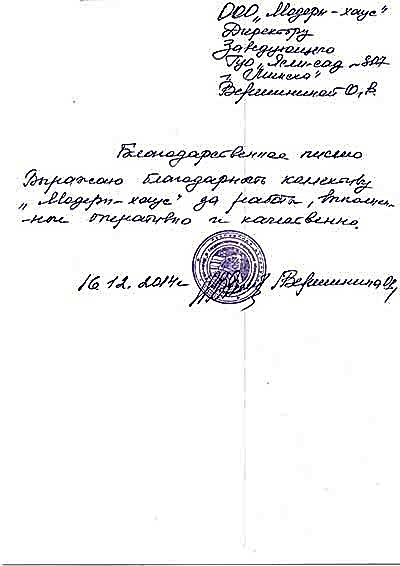 ООО „Модерн-хаус"
Директору
Заведующего
ГУО „Ясли-сад №
г. Минска"
Вершининой О.В.
Благодарственное письмо
Выражаю благодарность коллективу
„Модерн-хаус" за работы, выполнен-
-ные оперативно и качественно.
16.12.2014г. Вершинина О.В.